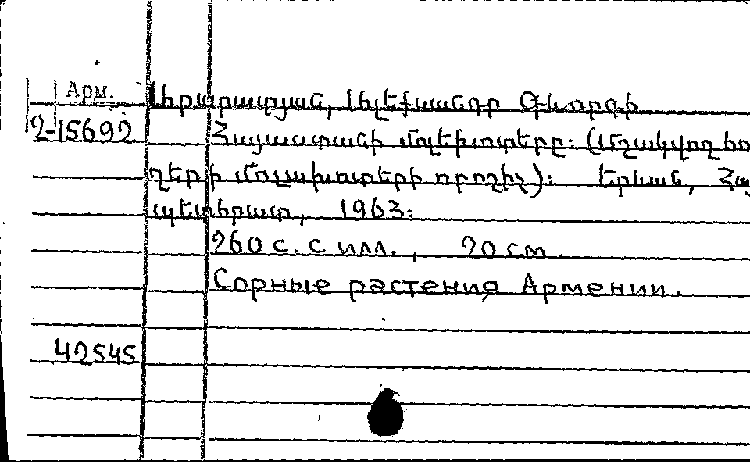 Арм.
Արարատյան, Ալեքսանդր Գևորգի
2-15692
Հայաստանի մոլախոտերը: (Մշակվող հո
ղերի մոլախոտերի որոշիչ): Երևան, Հայ
պետհրատ, 1963:
260 с. с илл., 20 см
Сорные растения Армении.
42545